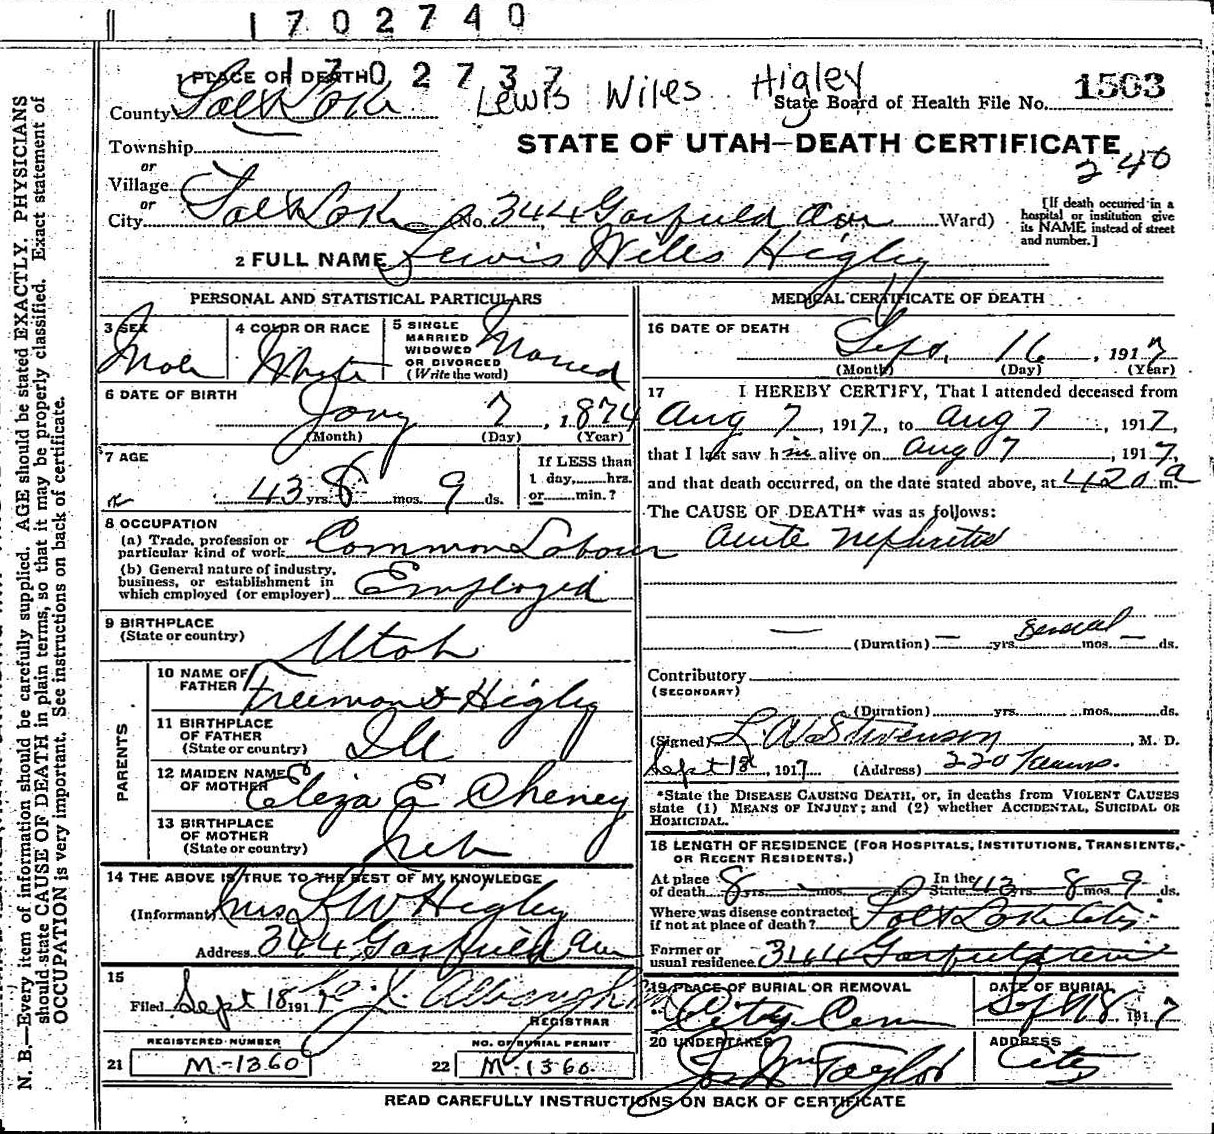 1702740
1702737
1 PLACE OF DEATH
Lewis Wiles Higley
County Salt Lake
State Board of Health File No. 1503
STATE OF UTAH—DEATH CERTIFICATE
240
Township
or
Village
or
City Salt Lake No. 344 Garfield Ave Ward)
[If death occurred in a
hospital or institution give
its NAME instead of street
and number.]
2 FULL NAME Lewis Wiles Higley
PERSONAL AND STATISTICAL PARTICULARS
3 SEX
Male
4 COLOR OR RACE
White
5 SINGLE
MARRIED
WIDOWED
OR DIVORCED
(Write the word)
Married
6 DATE OF BIRTH
Jany 7, 1874
(Month) (Day) (Year)
7 AGE
43 yrs. 8 mos. 9 ds.
If LESS than
1 day,......hrs.
or......min.?
8 OCCUPATION
(a) Trade, profession or
particular kind of work Common Labour
(b) General nature of industry,
business, or establishment in
which employed (or employer) Employed
9 BIRTHPLACE
(State or country)
Utah
PARENTS
10 NAME OF
FATHER Freemont Higley
11 BIRTHPLACE
OF FATHER
(State or country)
Ill
12 MAIDEN NAME
OF MOTHER Eliza E Cheney
13 BIRTHPLACE
OF MOTHER
(State or country)
Neb
14 THE ABOVE IS TRUE TO THE BEST OF MY KNOWLEDGE
(Informant) Mrs L W Higley
Address 344 Garfield Ave
15
Filed Sept 18 1917
REGISTRAR
REGISTERED NUMBER
21 M-1360
NO. OF BURIAL PERMIT
22 M-1360
MEDICAL CERTIFICATE OF DEATH
16 DATE OF DEATH
Sept. 16, 1917
(Month) (Day) (Year)
17 I HEREBY CERTIFY, That I attended deceased from
Aug 7, 1917, to Aug 7, 1917,
that I last saw him alive on Aug 7, 1917,
and that death occurred, on the date stated above, at 420 a m.
The CAUSE OF DEATH* was as follows:
Acute Nephritis
(Duration) — yrs. Several mos. — ds.
Contributory
(SECONDARY)
(Duration) yrs. mos. ds.
(Signed) Stevenson, M. D.
Sept 18, 1917 (Address) 220
*State the DISEASE CAUSING DEATH, or, in deaths from VIOLENT CAUSES
state (1) MEANS OF INJURY; and (2) whether ACCIDENTAL, SUICIDAL OR
HOMICIDAL.
18 LENGTH OF RESIDENCE (FOR HOSPITALS, INSTITUTIONS, TRANSIENTS,
OR RECENT RESIDENTS.)
At place
of death 8 yrs. mos. ds. In the
State 43 yrs. 8 mos. 9 ds.
Where was disease contracted
if not at place of death? Salt Lake City
Former or
usual residence 344 Garfield Ave
19 PLACE OF BURIAL OR REMOVAL
City Cem
DATE OF BURIAL
Sept 18 1917
20 UNDERTAKER
Jos Wm Taylor
ADDRESS
City
READ CAREFULLY INSTRUCTIONS ON BACK OF CERTIFICATE
N. B.—Every item of information should be carefully supplied. AGE should be stated EXACTLY. PHYSICIANS
should state CAUSE OF DEATH in plain terms, so that it may be properly classified. Exact statement of
OCCUPATION is very important. See instructions on back of certificate.